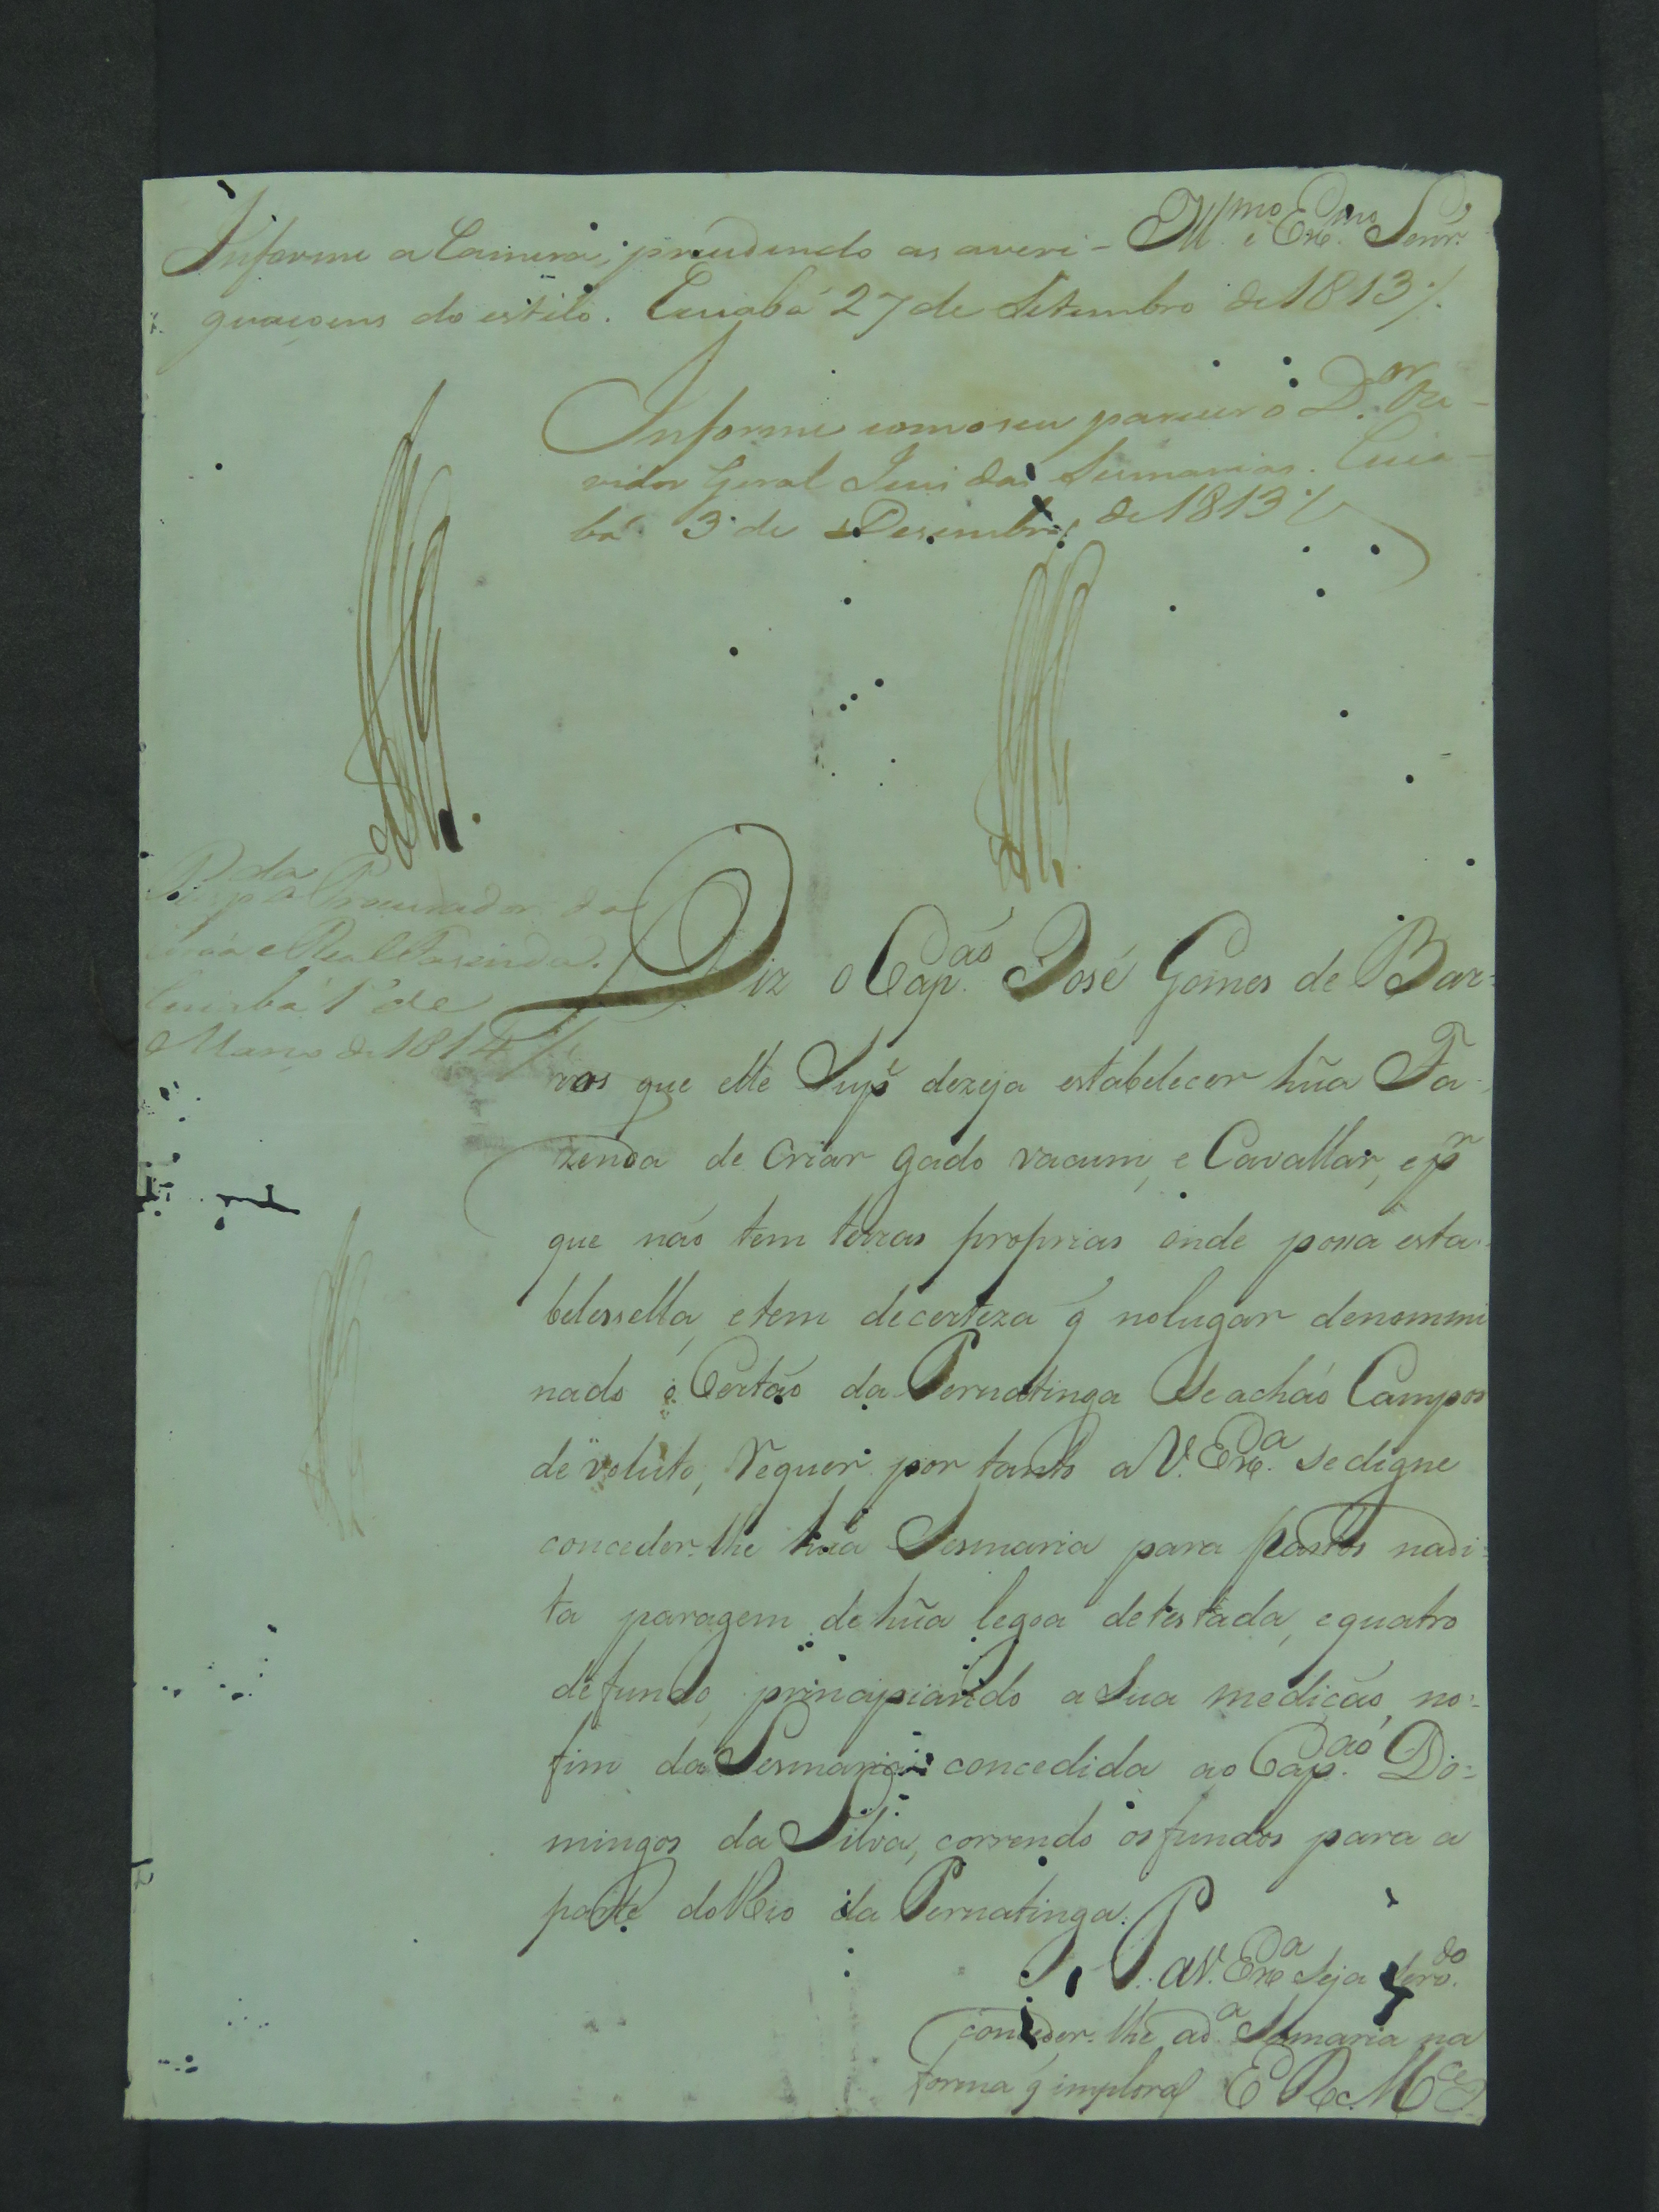 Ill.mo e Exc.mo Senr.
Informe a Camera, precedendo as averi-
guaçoens do estilo. Cuiabá 27 de Setembro de 1813 //.
Informe com o seu parecer o D.or Ou-
vidor Geral Juis das Sesmarias. Cuia-
bá 3 de Dezembro de 1813 //
Procurador da
Coroa e Real Fazenda.
Cuiabá 1º de
Março de 1814 //
Diz o Cap.ão José Gomes de Bar-
ros que elle Supe. dezeja estabelecer hũa Fa-
zenda de criar gado vacum, e Cavallar, e pr
que não tem terras proprias onde possa esta-
belessella, e tem de certeza q̃ no lugar denommi
nado o Certão da Pernatinga Se achão Campos
devoluto, requer por tanto a V. Exc.a se digne
conceder-lhe hũa Sesmaria para pastos na di-
ta paragem de hũa legoa de testada, e quatro
de fundo, principiando a Sua medição, no-
fim da Sesmaria concedida ao Cap.ão Do-
mingos da Silva, correndo os fundos para a
parte do Rio da Pernatinga.
P. a V. Exc.a Seja Serv.do
conceder-lhe a d.a Sesmaria na
forma q̃ implora
E R. M.ce